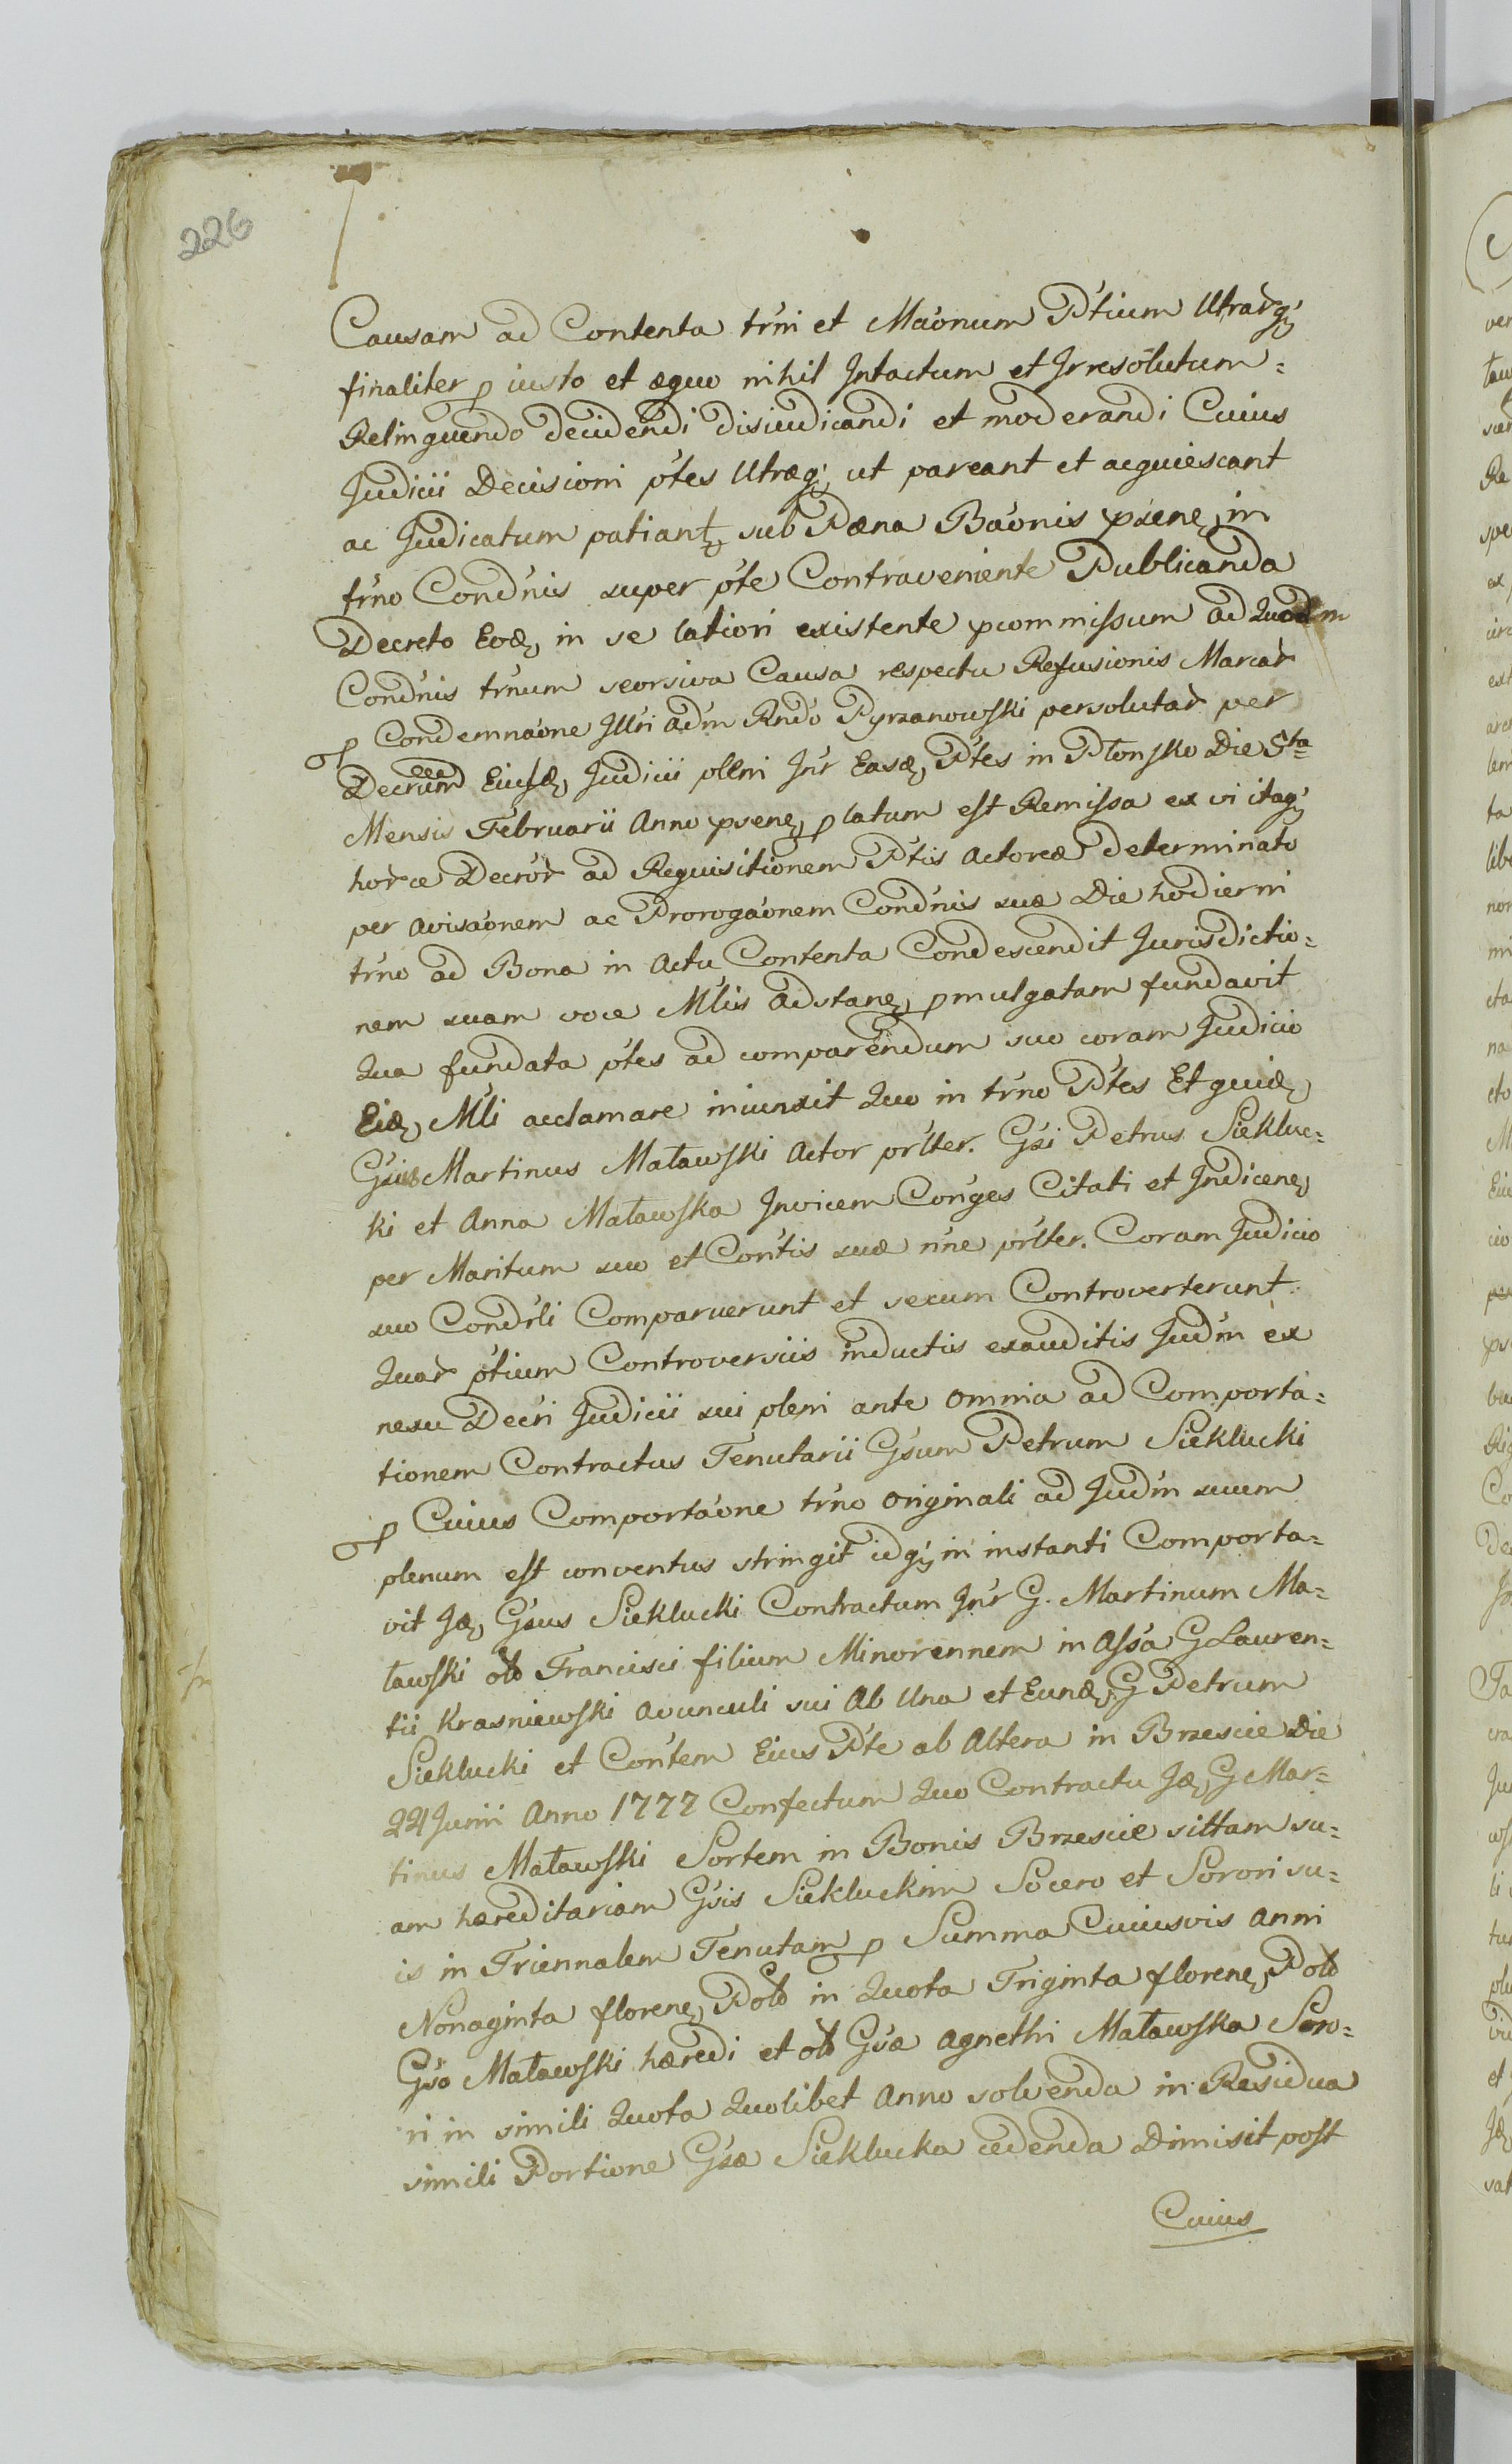 226
Causam ad Contenta tŕni et Maónum Ptium Utraŕq;
finaliter p iusto et æquo nihil Intactum et Irresolutum=
Relinquendo decidendi disiudicandi et moderandi Cuius
Judicii Decisioni ptes Utræq; ut pareant et acquiescant
ac Judicatum patiant sub Pæna Baónis pxene in
tŕno Condńis super pte Contraveniente Publicanda
Decreto Eod in se latiori existente pcommissum ad Quodm
Condńis tŕnum seorsiva Causa respectu Refusionis Marcar
p Condemnaóne Illri adm Rndo Pyrzanowski persolutar per
Decretum Eiusd Judicii pleni Inr Easd Ptes in Płonsko Die 5ta
Mensis Februarii Anno psene p latum est Remissa ex vi itaq;
horce Decror ad Requisitionem Ptis Actoreæ determinato
per avisaónem ac Prorogaónem Condńis suæ Die hodierni
tŕno ad Bona in Actu Contenta Condescendit Jurisdictio=
nem suam voce Mlis adstane pmulgatam fundavit
Qua fundata ptes ad comparendum suo coram Judicio
Eid Mli acclamare iniunxit Quo in tŕno Ptes Et quid
Gsus Martinus Małowski Actor prlter. Gsi Petrus Siekluc=
ki et Anna Małowska Invicem Conges Citati et Indicene
per Maritum suo et Contis suæ nne prlter. Coram Judicio
suo Condrli Comparuerunt et sexum Controverterunt.
Quar ptium Controversiis inductis exauditis Judm ex
nexu Decri Judicii sui pleni ante omnia ad Comporta=
tionem Contractus Tenutarii Gsum Petrum Sieklucki
p Cuius Comportaóne tŕno originali ad Judm suum
plenum est conventus stringit idq; in instanti Comporta=
vit Id Gsus Sieklucki Contractum Inr G. Martinum Ma=
ławski olb Francisci filium Minorennem in Assa G Lauren=
tii Krasniewski avunculi sui Ab Una et Eund G Petrum
Sieklucki et Contem Eius Pte ab Altera in Brzescie Die
24 Junii Anno 1777 Confectum Quo Contractu Id G Mar=
tinus Małowski Sortem in Bonis Brzescie sittam su=
am hæreditariam Gsis Siekluckim Socero et Sorori su=
is in Triennalem Tenutam p Summa Cuiusvis anni
Nonaginta florene Polb in Quota Triginta florene Polb
Gso Małowski hæredi et olb Gsæ Agnethi Małowska Soro=
ri in simili Quota Quolibet Anno solvenda in Residua
simili Portione Gsæ Sieklucka cedenda Dimisit post
Cuius